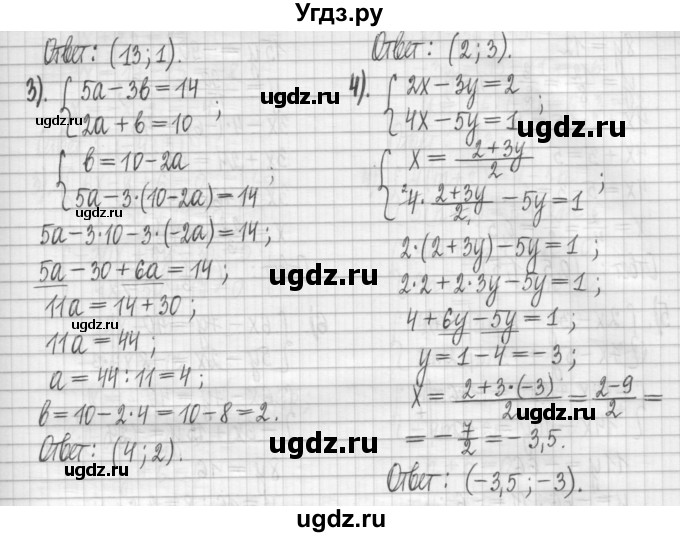 Угдз.ру
Ответ: (13; 1).
3). { 5a − 3b = 14
2a + b = 10 ;
{ b = 10 − 2a
5a − 3·(10 − 2a) = 14 ;
5a − 3·10 − 3·(−2a) = 14 ;
5a − 30 + 6a = 14 ;
11a = 14 + 30 ;
11a = 44 ;
a = 44 : 11 = 4 ;
b = 10 − 2·4 = 10 − 8 = 2.
Ответ: (4; 2).
Ответ: (2; 3).
4). { 2x − 3y = 2
4x − 5y = 1 ;
{ x = (2 + 3y)/2
²4· (2 + 3y)/2₁ − 5y = 1 ;
2·(2 + 3y) − 5y = 1 ;
2·2 + 2·3y − 5y = 1 ;
4 + 6y − 5y = 1 ;
y = 1 − 4 = −3 ;
x = (2 + 3·(−3))/2 = (2 − 9)/2 =
= − 7/2 = − 3,5.
Ответ: (−3,5 ; −3).
ugdz.ru
ugdz.ru
ugdz.ru
ugdz.ru
ugdz.ru
ugdz.ru
ugdz.ru
ugdz.ru
ugdz.ru
ugdz.ru
ugdz.ru
ugdz.ru
ugdz.ru